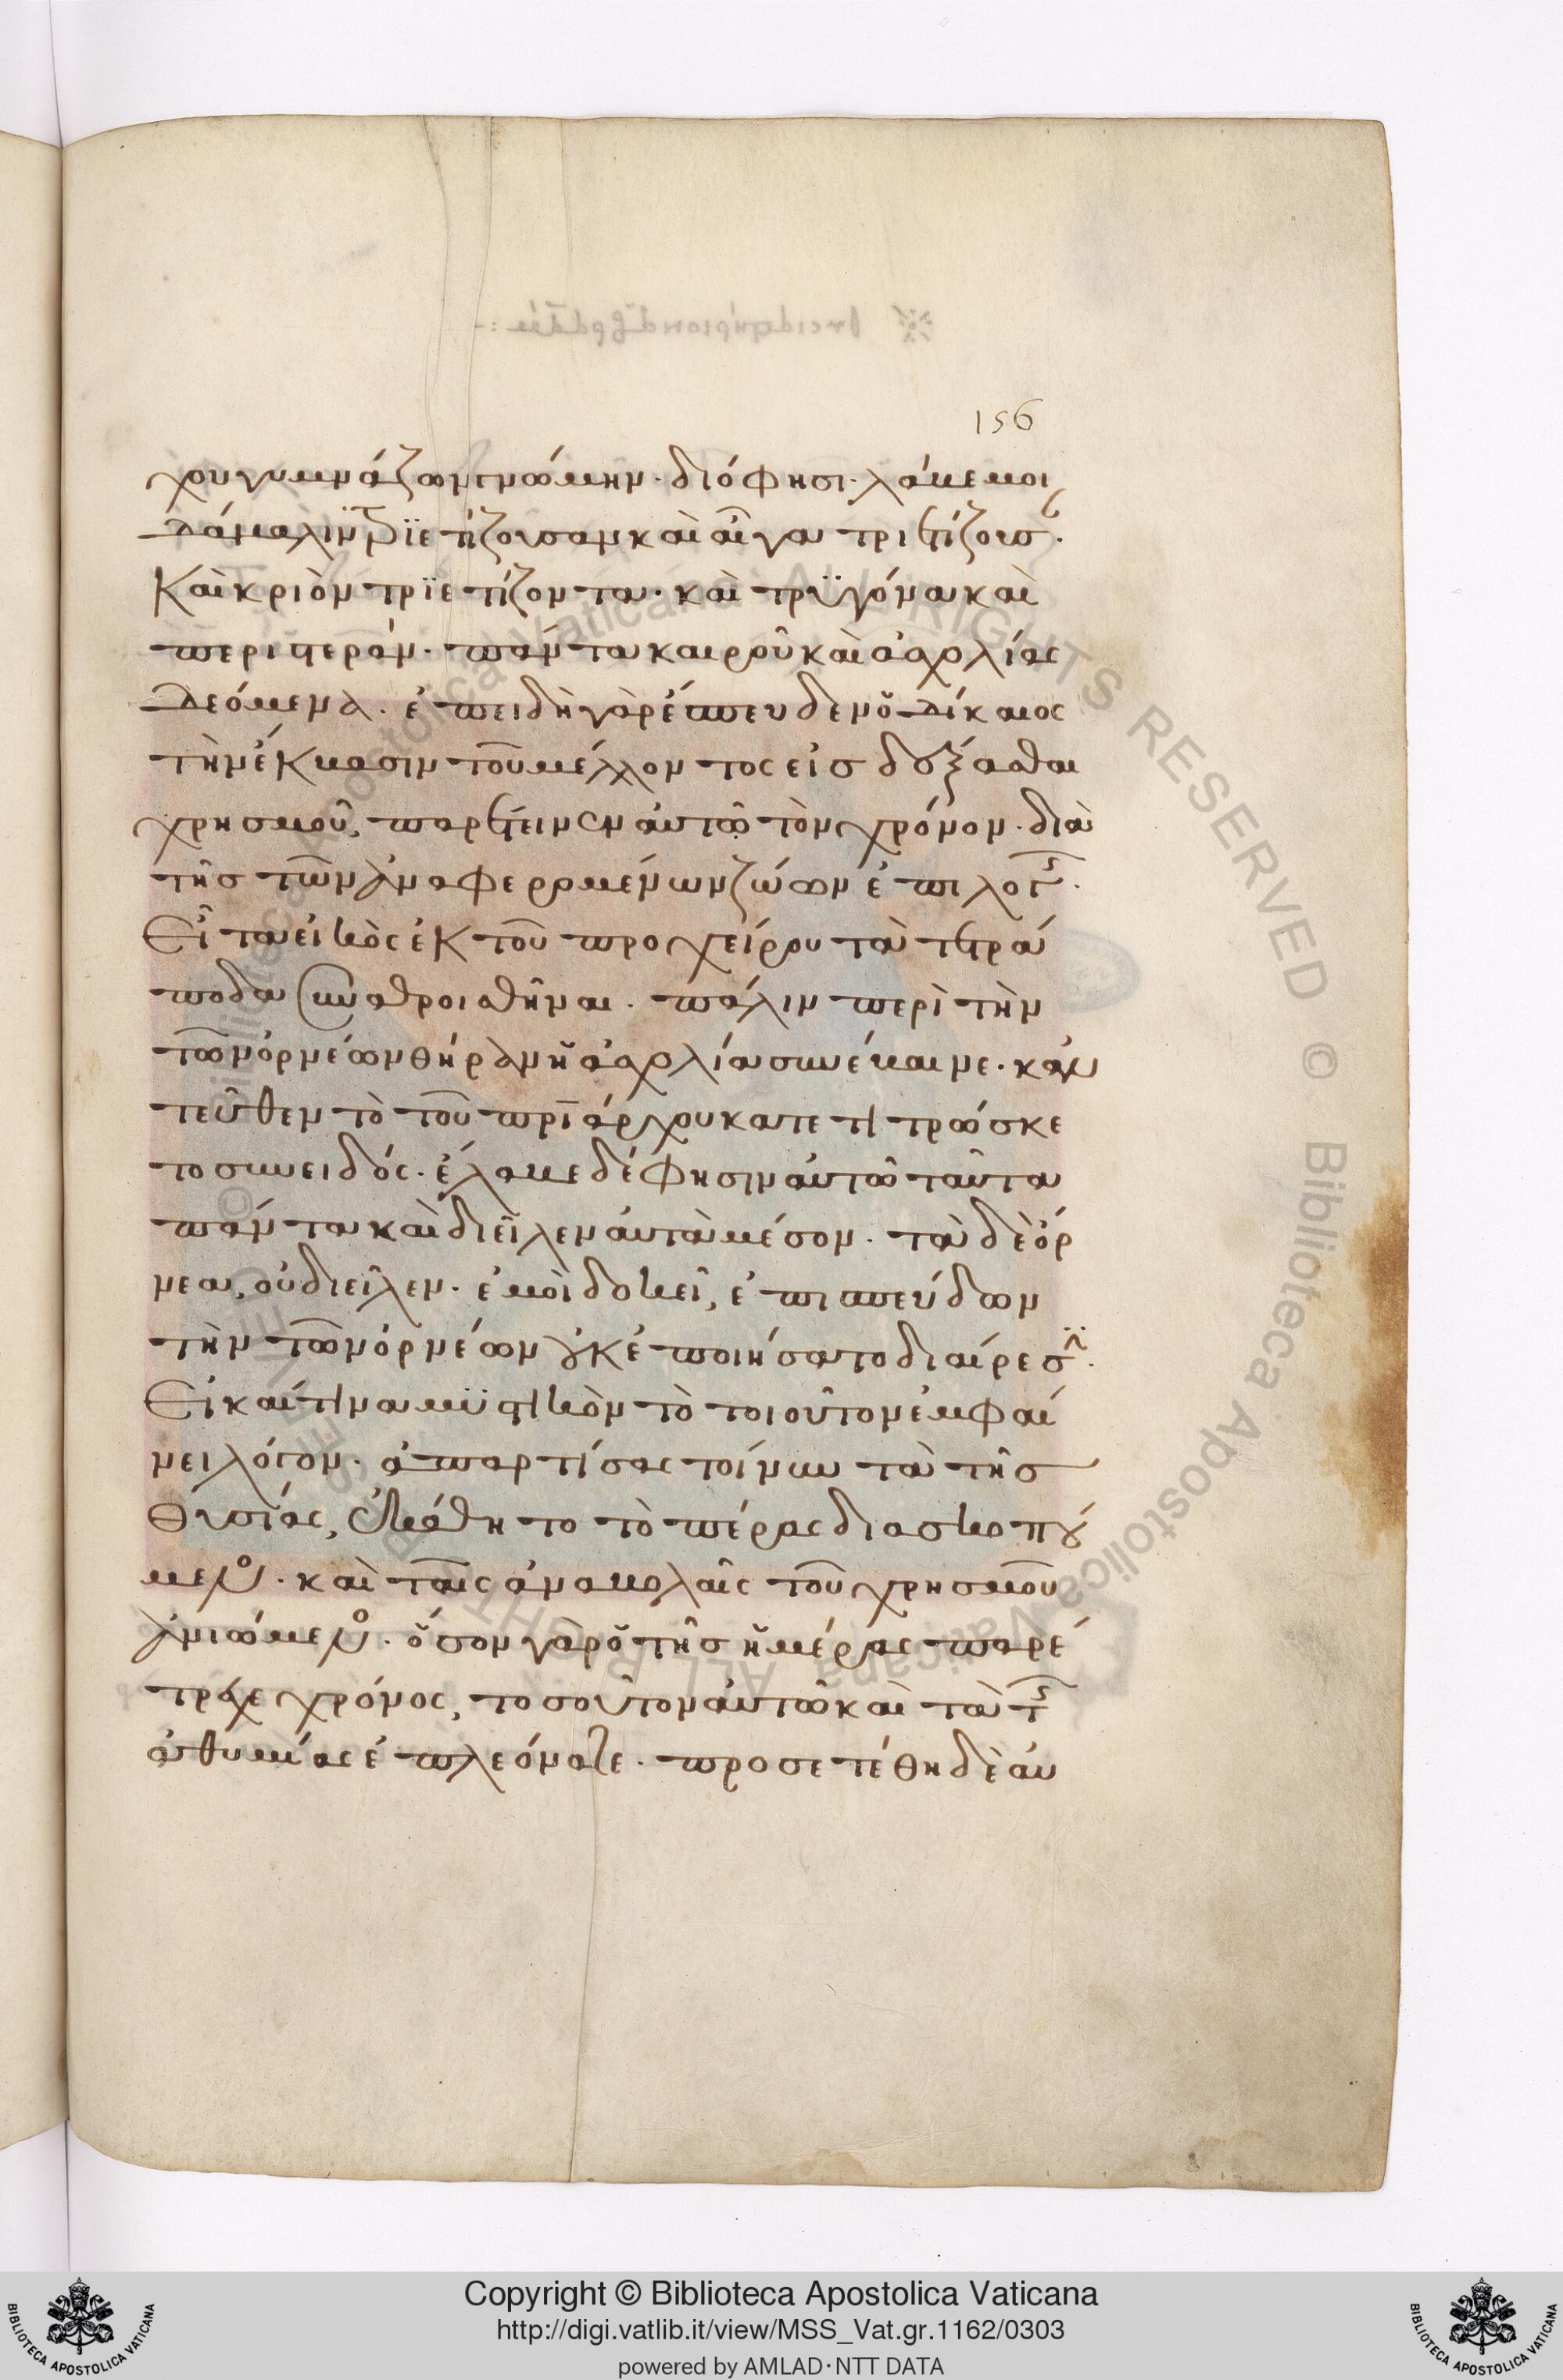 156
χου γυμνάζων γνώμην· διό φησι· λάβε μοι
δάμαλιν τριετίζουσαν καὶ αἶγα τριετίζουσ·
Καὶ κριὸν τριετίζοντα· καὶ τρυγόνα καὶ
περιστεράν· πάντα καιροῦ καὶ ἀσχολίας
δεόμενα· ἐπειδὴ γὰρ ἔσπευδεν ὁ δίκαιος
τὴν ἔκβασιν τοῦ μέλλοντος εἰσδέξασθαι
χρησμοῦ, παρέτεινεν αὐτῶ τὸν χρόνον· διὰ
τῆς τῶν ἀναφερομένων ζώων ἐπιλογ·
Εἶτα εἰκὸς ἐκ τοῦ προχείρου τὰ τετρά
ποδα συναθροισθῆναι· πάλιν περὶ τὴν
τῶν ὀρνέων θήραν ἡ ἀσχολία συνέβαινε· κἀν
τεῦθεν τὸ τοῦ πριάρχου κατετιτρώσκε
το συνειδός· ἔλαβε δέ φησιν αὐτῶ ταῦτα
πάντα καὶ διεῖλεν αὐτὰ μέσον· τὰ δὲ ὄρ
νεα, οὐ διεῖλεν· ἐμοὶ δοκεῖ, ἐπισπεύδων
τὴν τῶν ὀρνέων οὐκ ἐποιήσατο διαίρεσ·
Εἰ καί τινα μυστικὸν τὸ τοιοῦτον ἐμφαί
νει λόγον· ἀπαρτίσας τοίνυν τὰ τῆς
θυσίας, ἐκάθητο τὸ πέρας διασκοπού
μενο· καὶ ταῖς ἀναβολαῖς τοῦ χρησμοῦ
ἀνιώμενο· ὅσον γὰρ ὁ τῆς ἡμέρας παρέ
τρεχε χρόνος, τοσοῦτον αὐτῶ καὶ τὰ τ
ἀθυμίας ἐπλεόναζε· προσετέθη δὲ αὐ
Copyright © Biblioteca Apostolica Vaticana
http://digi.vatlib.it/view/MSS_Vat.gr.1162/0303
powered by AMLAD·NTT DATA
BIBLIOTECA APOSTOLICA VATICANA
BIBLIOTECA APOSTOLICA VATICANA